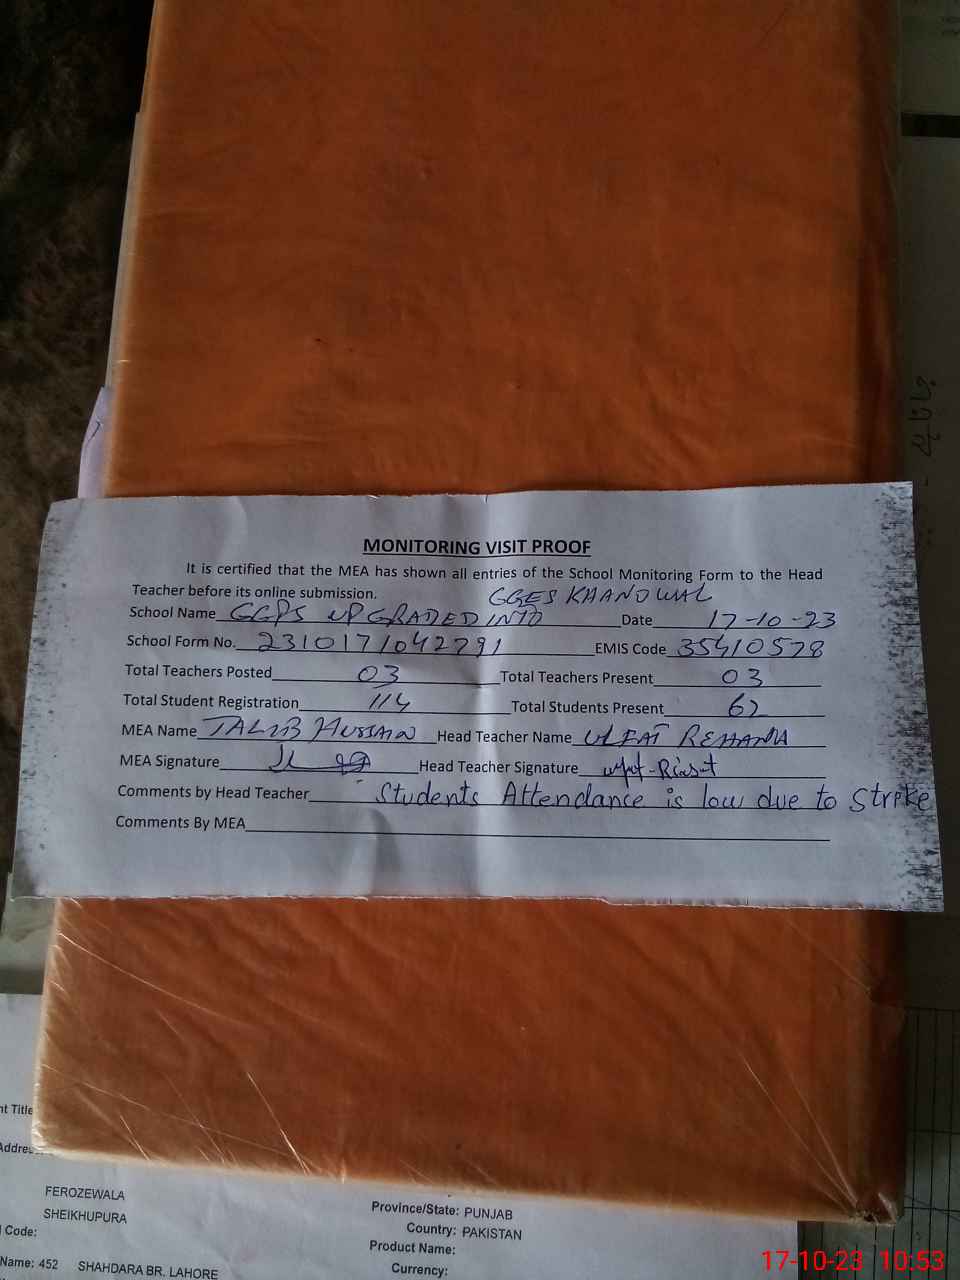 MONITORING VISIT PROOF
It is certified that the MEA has shown all entries of the School Monitoring Form to the Head
Teacher before its online submission.
GGES KHANDWAL
School Name GGPS UPGRADED INTO Date 17-10-23
School Form No. 2310171042791 EMIS Code 35410578
Total Teachers Posted 03 Total Teachers Present 03
Total Student Registration 114 Total Students Present 62
MEA Name TALIB HUSSAIN Head Teacher Name ULFAT REHANA
MEA Signature Head Teacher Signature
Comments by Head Teacher Students Attendance is low due to Strike
Comments By MEA
nt Title
Addres
FEROZEWALA
SHEIKHUPURA
Province/State: PUNJAB
Country: PAKISTAN
l Code:
Product Name:
Name: 452 SHAHDARA BR. LAHORE
Currency:
17-10-23 10:53